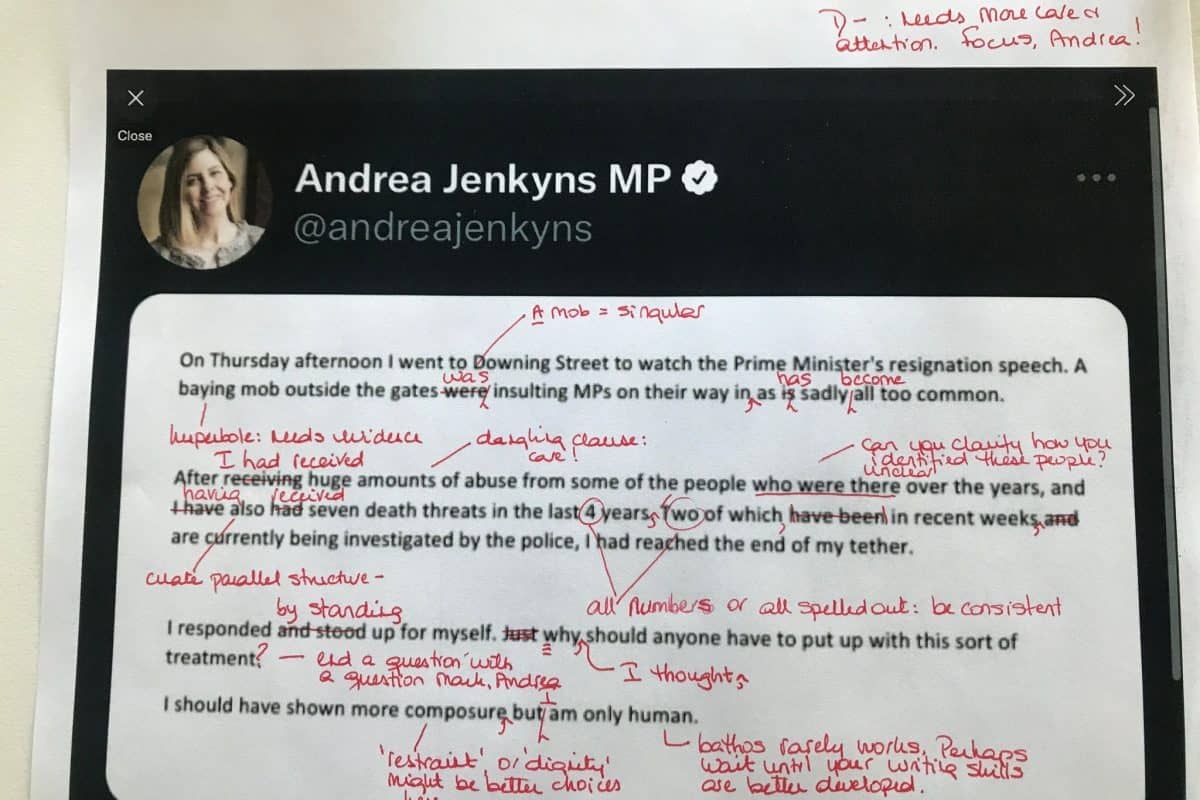 D- : Needs more care &
attention. Focus, Andrea!
Close
Andrea Jenkyns MP
@andreajenkyns
A mob = singular
On Thursday afternoon I went to Downing Street to watch the Prime Minister's resignation speech. A
was has become
baying mob outside the gates were insulting MPs on their way in, as is sadly all too common.
hyperbole: needs evidence
dangling clause:
care!
can you clarify how you
identified these people?
unclear
I had received
After receiving huge amounts of abuse from some of the people who were there over the years, and
having received
I have also had seven death threats in the last 4 years, Two of which have been in recent weeks, and
are currently being investigated by the police, I had reached the end of my tether.
create parallel structure -
all numbers or all spelled out: be consistent
by standing
I responded and stood up for myself. Just why, should anyone have to put up with this sort of
treatment? - end a question with
a question mark, Andrea
I thought,
I
I should have shown more composure, but am only human.
'restraint' or 'dignity'
might be better choices
bathos rarely works. Perhaps
wait until your writing skills
are better developed.